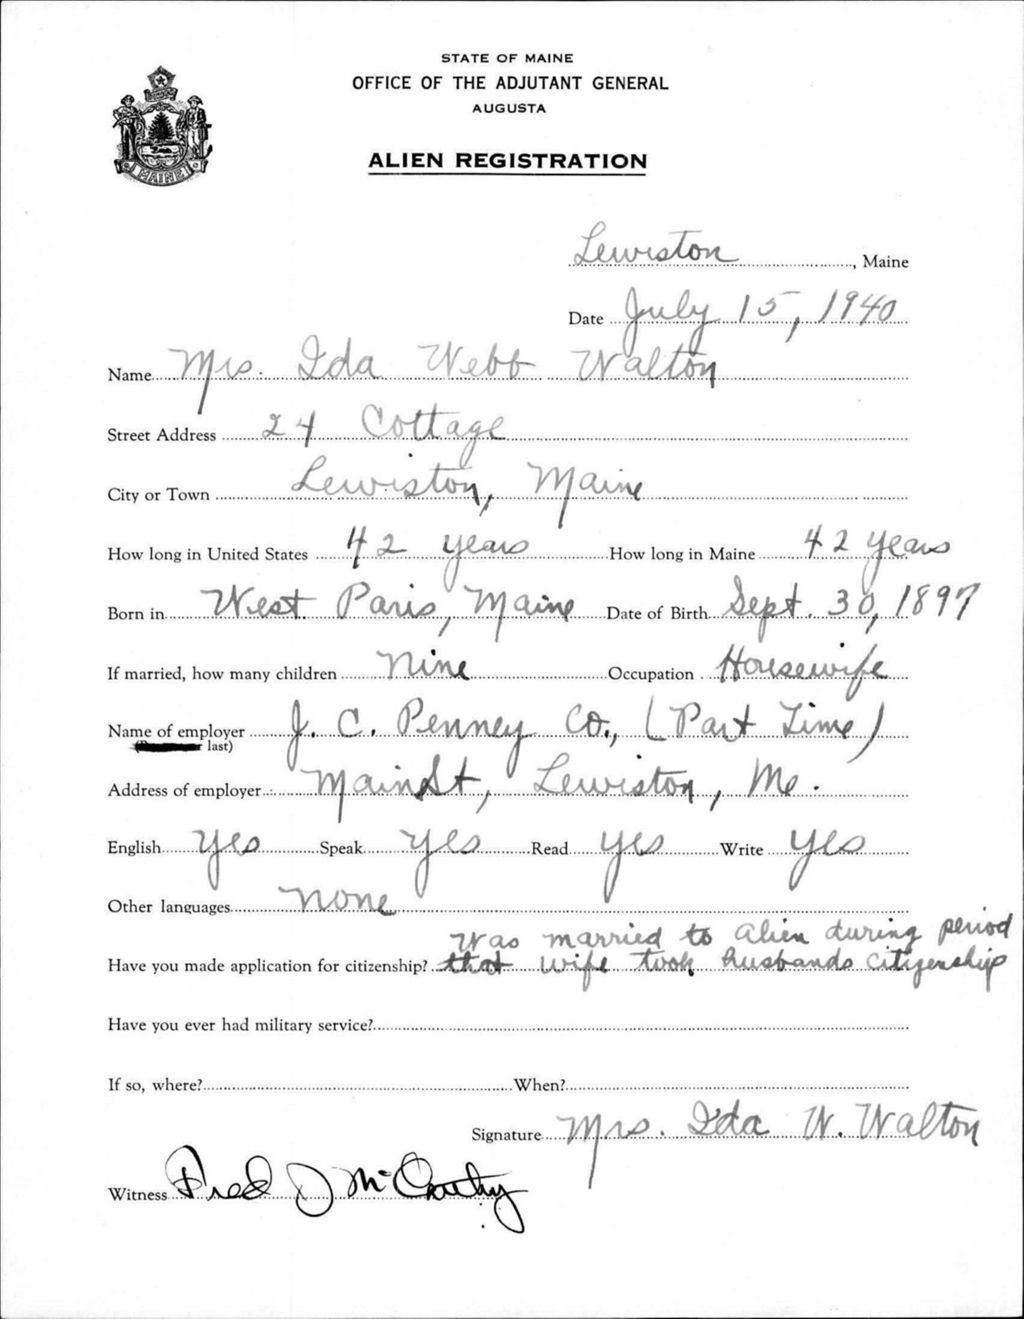 STATE OF MAINE
OFFICE OF THE ADJUTANT GENERAL
AUGUSTA
MAINE
ALIEN REGISTRATION
Lewiston, Maine
Date July 15, 1940
Name Mrs. Ida Webb Walton
Street Address 24 Cottage
City or Town Lewiston, Maine
How long in United States 42 years How long in Maine 42 years
Born in West Paris, Maine Date of Birth Sept. 30, 1897
If married, how many children Nine Occupation Housewife
Name of employer J. C. Penney Co., (Part Time)
last)
Address of employer Main St, Lewiston, Me.
English Yes Speak Yes Read Yes Write Yes
Other languages None
Was married to alien during period
Have you made application for citizenship? that wife took husbands citizenship
Have you ever had military service?
If so, where? When?
Signature Mrs. Ida W. Walton
Witness Fred J McCarthy